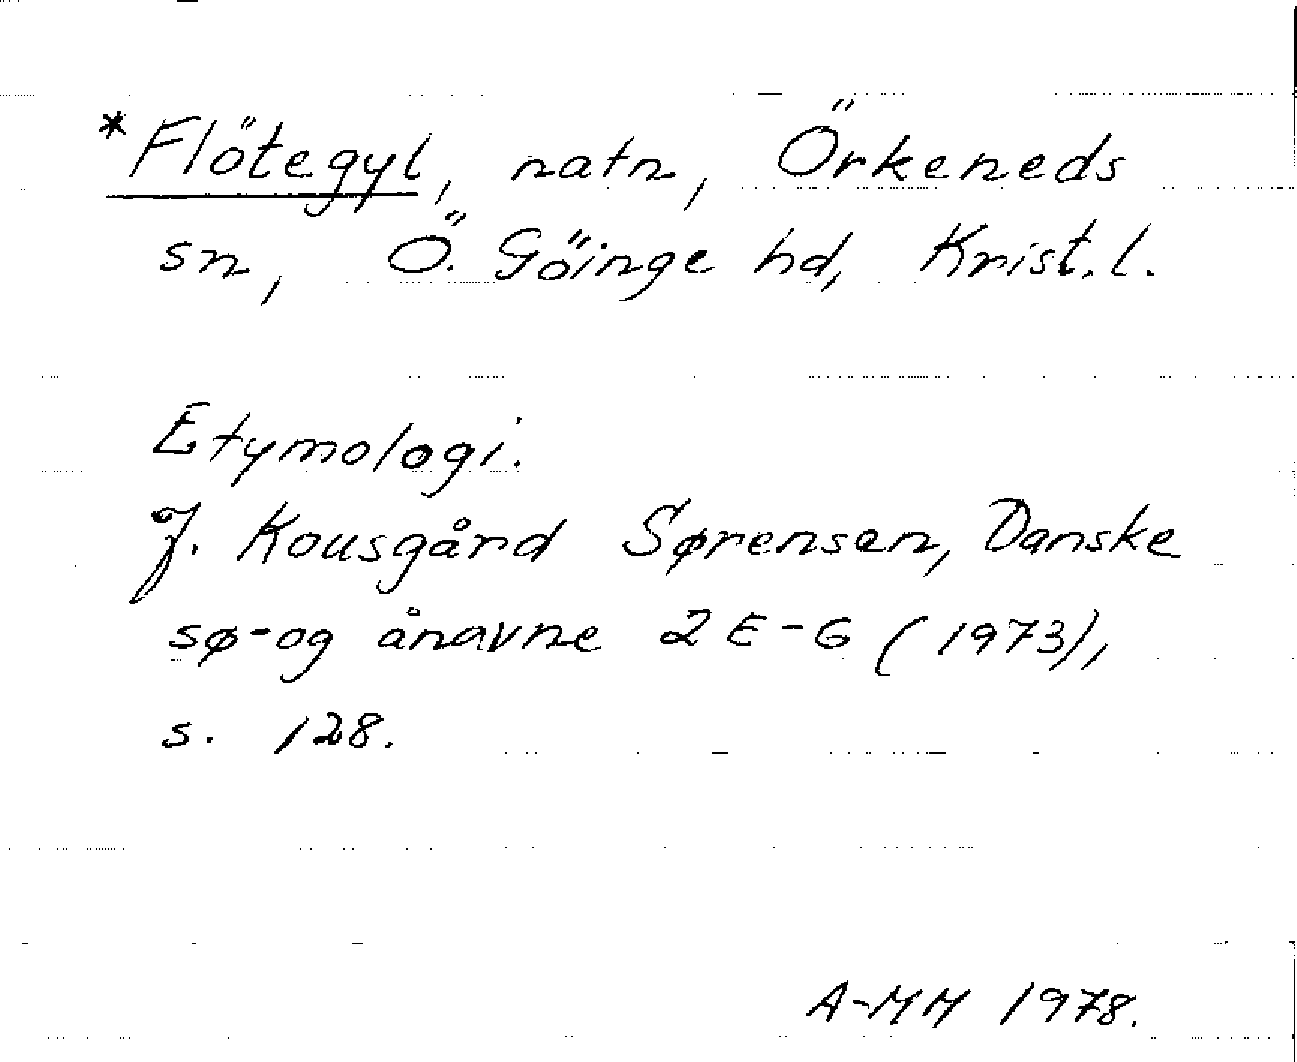 *Flötegyl, natn, Örkeneds
sn, Ö. Göinge hd, Krist. l.
Etymologi.
J. Kousgård Sørensen, Danske
sø- og ånavne 2 E-G (1973),
s. 128.
A-MM 1978.